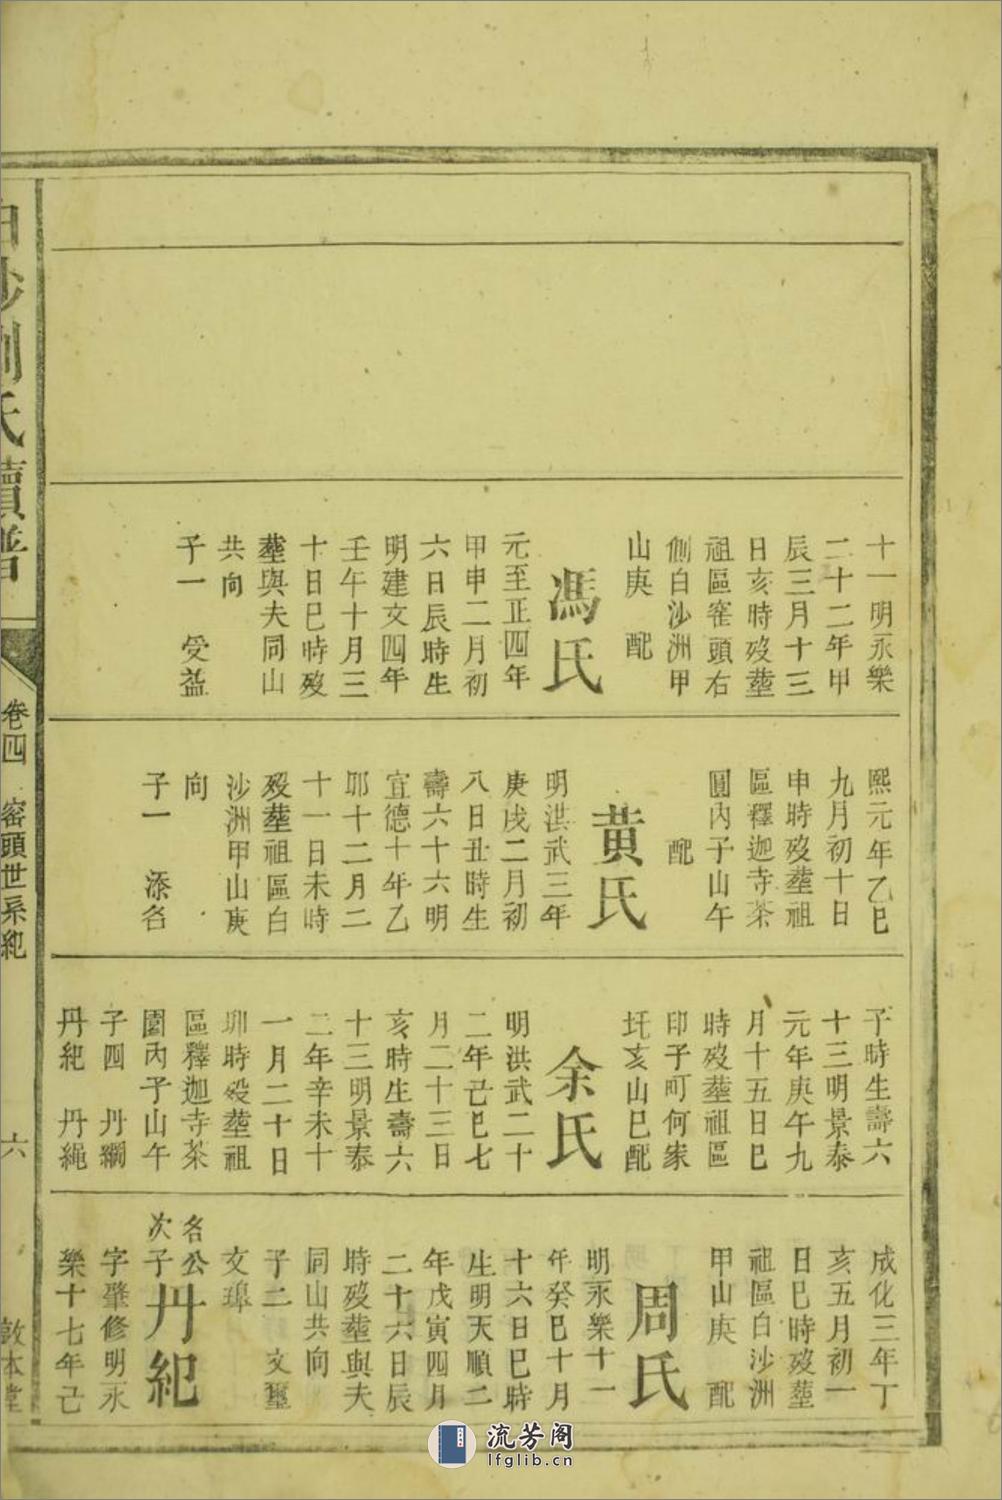 十一明永樂
二十二年甲
辰三月十三
日亥時歿塟
祖區窑頭右
側白沙洲甲
山庚 配
馮氏
元至正四年
甲申二月初
六日辰時生
明建文四年
壬午十月三
十日巳時歿
塟與夫同山
共向
子一 受益
熙元年乙巳
九月初十日
申時歿塟祖
區釋迦寺茶
園內子山午
配
黄氏
明洪武三年
庚戌二月初
八日丑時生
壽六十六明
宣德十年乙
卯十二月二
十一日未時
歿塟祖區白
沙洲甲山庚
向
子一 添名
子時生壽六
十三明景泰
元年庚午九
月十五日巳
時歿塟祖區
印子町何家
圫亥山巳配
余氏
明洪武二十
二年己巳七
月二十三日
亥時生壽六
十三明景泰
二年辛未十
一月二十日
卯時歿塟祖
區釋迦寺茶
園內子山午
子四 丹綱
丹紀 丹繩
成化三年丁
亥五月初一
日巳時歿塟
祖區白沙洲
甲山庚 配
周氏
明永樂十一
年癸巳十月
十六日巳時
生明天順二
年戊寅四月
二十六日辰
時歿塟與夫
同山共向
子二 文璽
文璋
名公次子丹紀
字肇修明永
樂十七年己
白沙劉氏續譜
卷四 窑頭世系紀
六
敦本堂
流芳阁
lfglib.cn